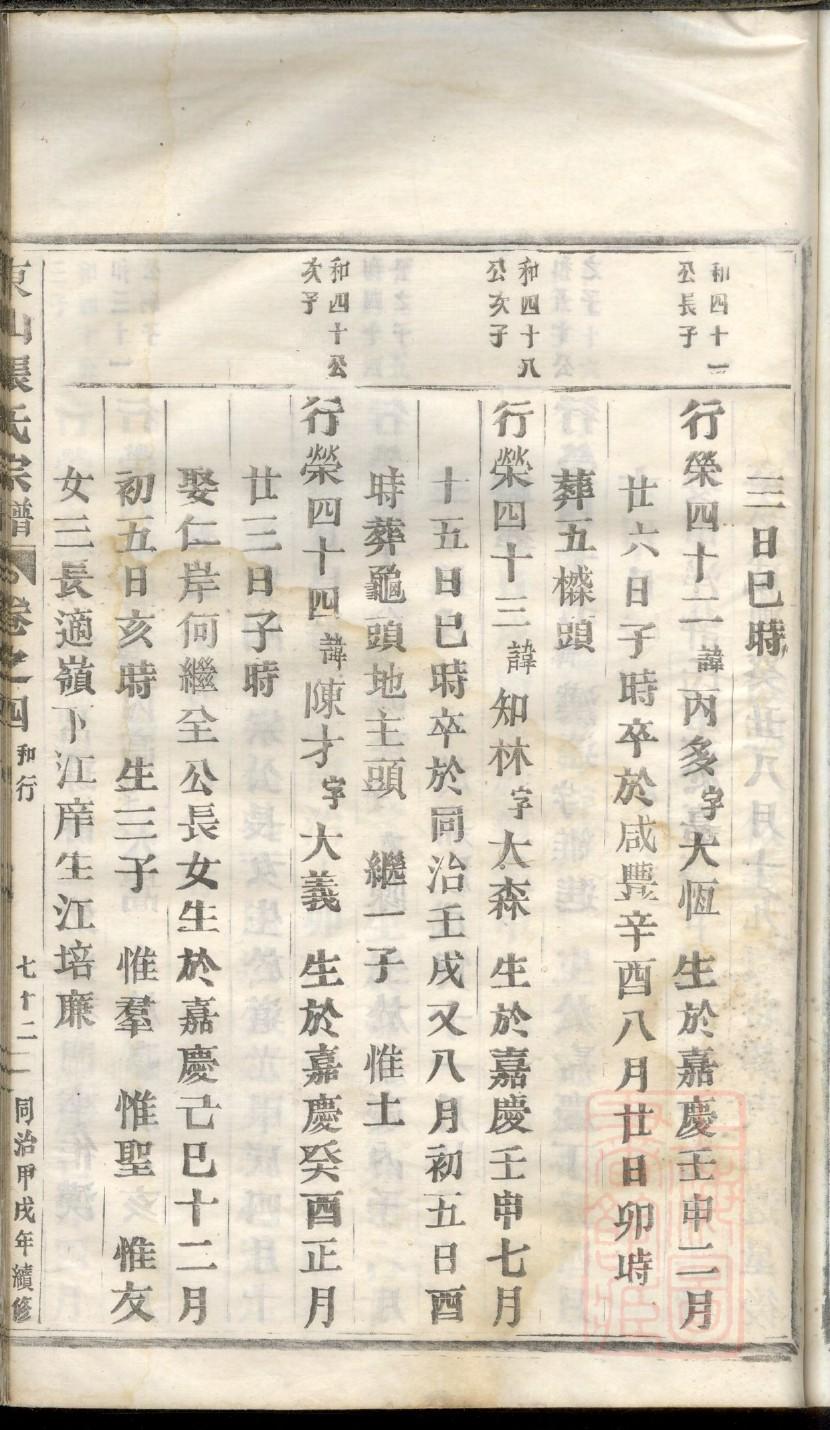 三日巳時
和四十一
公長子
行榮四十二諱丙多字大恆 生於嘉慶壬申二月
廿六日子時卒於咸豐辛酉八月廿日卯時
葬五櫟頭
和四十八
公次子
行榮四十三諱知林字大森 生於嘉慶壬申七月
十五日巳時卒於同治壬戌又八月初五日酉
時葬龜頭地主頭 繼一子 惟土
和四十公
次子
行榮四十四諱陳才字大義 生於嘉慶癸酉正月
廿三日子時
娶仁岸何繼全公長女生於嘉慶己巳十二月
初五日亥時 生三子 惟羣 惟聖 惟友
女三長適嶺下江庠生江培廉
東山張氏宗譜 卷之四 和行 七十二 同治甲戌年續修